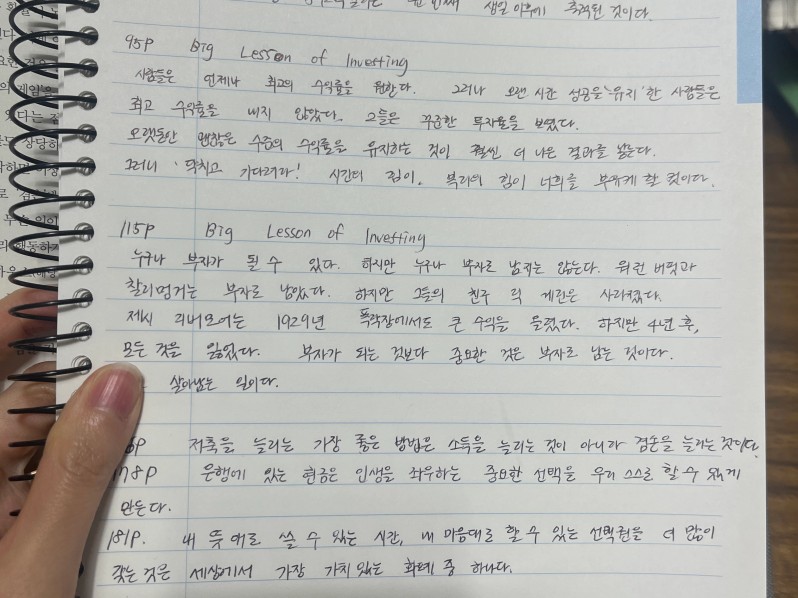 생일 이후에 축적된 것이다.
95P Big Lesson of Investing
사람들은 언제나 최고의 수익률을 원한다. 그러나 오랜 시간 성공을 '유지'한 사람들은
최고 수익률을 내지 않았다. 그들은 꾸준한 투자율을 보였다.
오랫동안 괜찮은 수준의 수익률을 유지하는 것이 훨씬 더 나은 결과를 낳는다.
그러니 '닥치고 기다려라! 시간의 힘이, 복리의 힘이 너희를 부유케 할 것이다.
115P Big Lesson of Investing
누구나 부자가 될 수 있다. 하지만 누구나 부자로 남지는 않는다. 워런 버핏과
찰리멍거는 부자로 남았다. 하지만 그들의 친구 릭 게린은 사라졌다.
제시 리버모어는 1929년 폭락장에서도 큰 수익을 올렸다. 하지만 4년 후,
모든 것을 잃었다. 부자가 되는 것보다 중요한 것은 부자로 남는 것이다.
살아남는 일이다.
저축을 늘리는 가장 좋은 방법은 소득을 늘리는 것이 아니라 겸손을 늘리는 것이다.
178P 은행에 있는 현금은 인생을 좌우하는 중요한 선택을 우리 스스로 할 수 있게
만든다.
181P. 내 뜻대로 쓸 수 있는 시간, 내 마음대로 할 수 있는 선택권을 더 많이
갖는 것은 세상에서 가장 가치있는 화폐 중 하나다.